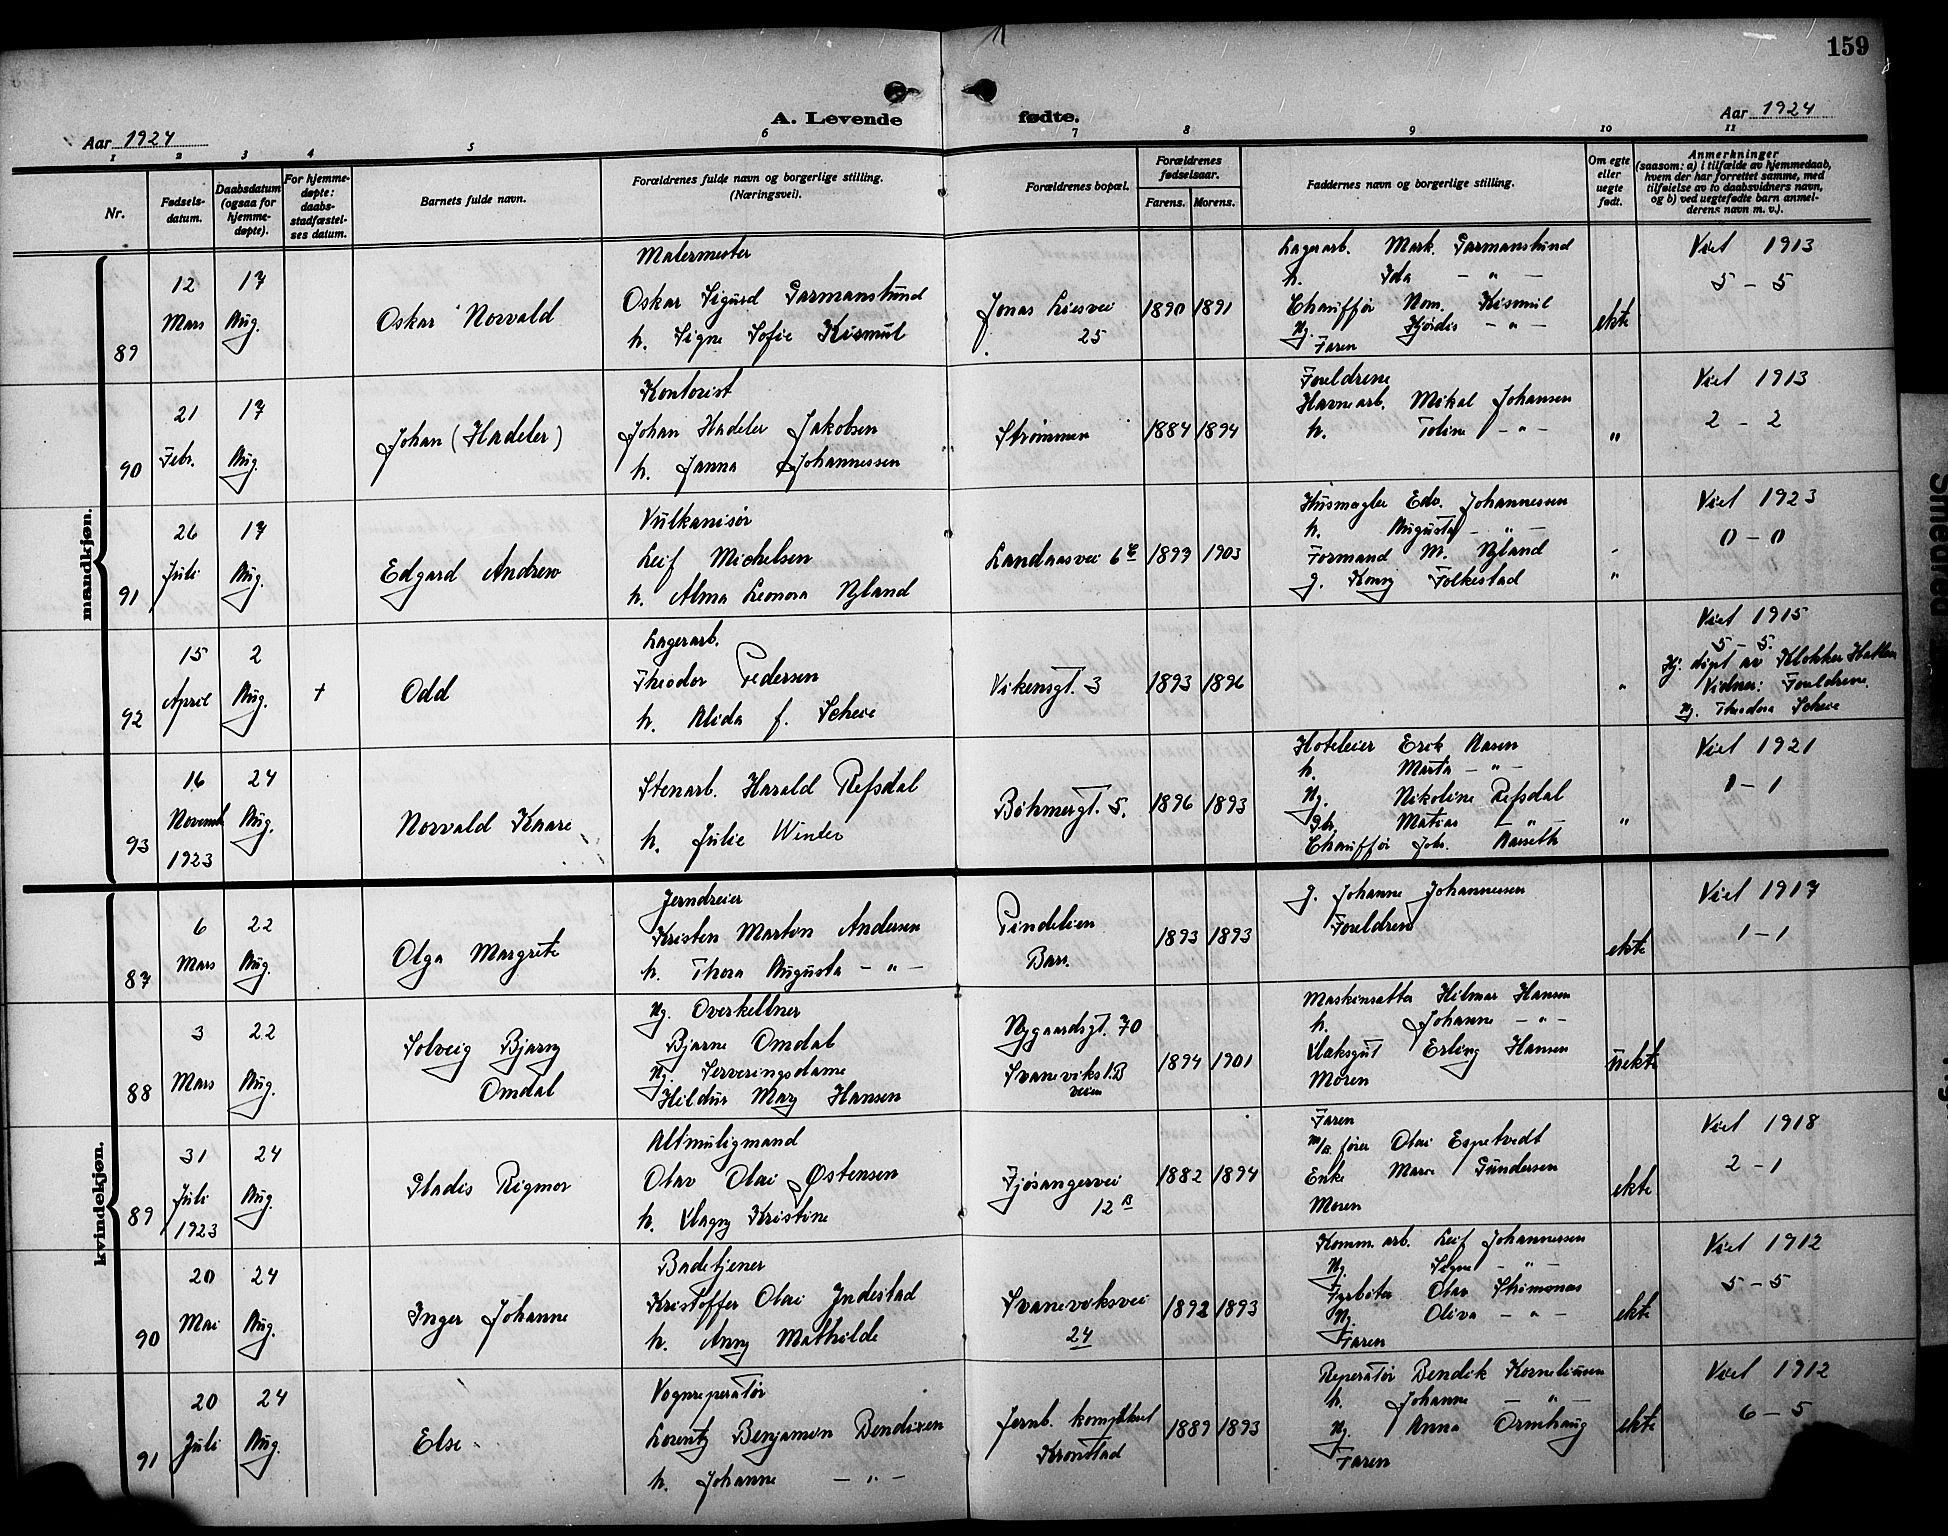 159
A. Levende fødte.
Aar 1924
Aar 1924
1 2 3 4 5 6 7 8 9 10 11
Nr.
Fødsels-
datum.
Daabsdatum
(ogsaa for
hjemme-
døpte).
For hjemme-
døpte:
daabs-
stadfæstel-
ses datum.
Barnets fulde navn.
Forældrenes fulde navn og borgerlige stilling.
(Næringsvei).
Forældrenes bopæl.
Forældrenes
fødselsaar.
Farens. Morens.
Faddernes navn og borgerlige stilling.
Om egte
eller
uegte
født.
Anmerkninger
(saasom: a) i tilfælde av hjemmedaab,
hvem der har forrettet samme, med
tilføielse av to daabsvidners navn,
og b) ved uegtefødte barn anmel-
derens navn m. v.).
mandkjøn.
89
12
Mars
17
Aug.
Oskar Norvald
Malermester
Oskar Sigurd Garmanslund
h. Signe Sofie Kismul
Jonas Liesvei
25
1890 1891
Lagerarb. Mark. Garmanslund
h. Ida - " -
Chauffør Nom. Kismul
Ug. Hjørdis - " -
Faren
ekte
Viet 1913
5 - 5
90
21
Febr.
17
Aug.
Johan (Hadeler)
Kontorist
Johan Hadeler Jakobsen
h. Janna Johannessen
Strømmen
1884 1894
Foreldrene
Havnearb. Mikal Johansen
h. Toline - " -
"
Viet 1913
2 - 2
91
26
Juli
17
Aug.
Edgard Andrew
Vulkanisør
Leif Michelsen
h. Alma Leonora Nyland
Landaasvei 6
1899 1903
Husmægler Edv. Johannessen
h. Augusta - " -
Formand M. Nyland
g. Konny Folkestad
"
Viet 1923
0 - 0
92
15
April
2
Aug.
+
Odd
Lagerarb.
Theodor Pedersen
h. Alida f. Scheie
Vikensgt. 3
1893 1896
"
Viet 1915
5 - 5.
Hj. døpt av Klokker Hatlen
Vidner: Foreldrene.
Ug. Theodora Scheie
93
16
Novemb
1923
24
Aug.
Norvald Kaare
Stenarb. Harald Refsdal
h. Julie Winter
Bøhmergt. 5.
1896 1893
Hoteleier Erik Aasen
h. Marta - " -
Ug. Nikoline Refsdal
Gb. Matias - " -
Chauffør Joh. Aaseth
"
Viet 1921
1 - 1
kvindekjøn.
87
6
Mars
22
Aug.
Olga Margrete
Jerndreier
Kristen Marton Andersen
h. Thora Augusta - " -
Tindelien
Bare.
1893 1893
g. Johanne Johannessen
Foreldrene
ekte
Viet 1917
1 - 1
88
3
Mars
22
Aug.
Solveig Bjarny
Omdal
Ug. Overkellner
Bjarne Omdal
Ug. Serveringsdame
Hildur Mary Hansen
Nygaardsgt. 70
Svaneviks 1.B
veien
1894 1901
Maskinsætter Hilmar Hansen
h. Johanne - " -
Vaksgut Erling Hansen
Moren
uekte
89
31
Juli
1923
24
Aug.
Gladis Rigmor
Altmuligmand
Olav Olai Østensen
h. Magny Kristine
Fjøsangervei
12 B
1882 1894
Faren
m/s fører Olai Espetvedt
Enke Marie Gundersen
Moren
ekte
Viet 1918
2 - 1
90
20
Mai
24
Aug.
Inger Johanne
Badetjener
Kristoffer Olai Indestad
h. Anny Mathilde
Svaneviksvei
24
1892 1893
Komm. arb. Leif Johannessen
Ug. Signe - " -
Fyrbøter Olav Strømsnes
Ug. Oliva - " -
Faren
ekte
Viet 1912
5 - 5
91
20
Juli
24
Aug.
Else
Vognreperatør
Lorentz Benjamin Bendixen
h. Johanne - " -
Jernb. kompleks
Kronstad
1889 1893
Reperatør Bendik Korneliussen
h. Johanne - " -
Ug. Anna Ormhaug
Faren
ekte
Viet 1912
6 - 5